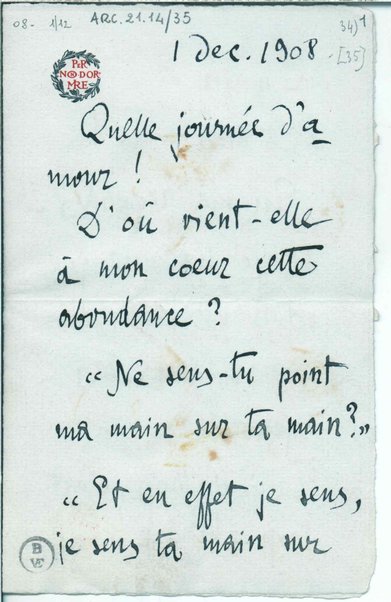 08- 1/12 ARC.21.14/35 34) 1
1 Dec. 1908 - [35]
PER
NON DOR
MIRE
Quelle journée d'a
mour !
D'où vient-elle
à mon coeur cette
abondance ?
« Ne sens-tu point
ma main sur ta main? »
« Et en effet je sens,
je sens ta main sur
B
VE